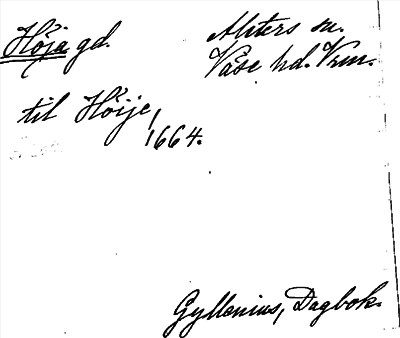 Höja gd.
Alsters sn.
Väse hd. Vrm.
til Höije,
1664.
Gyllenius, Dagbok.